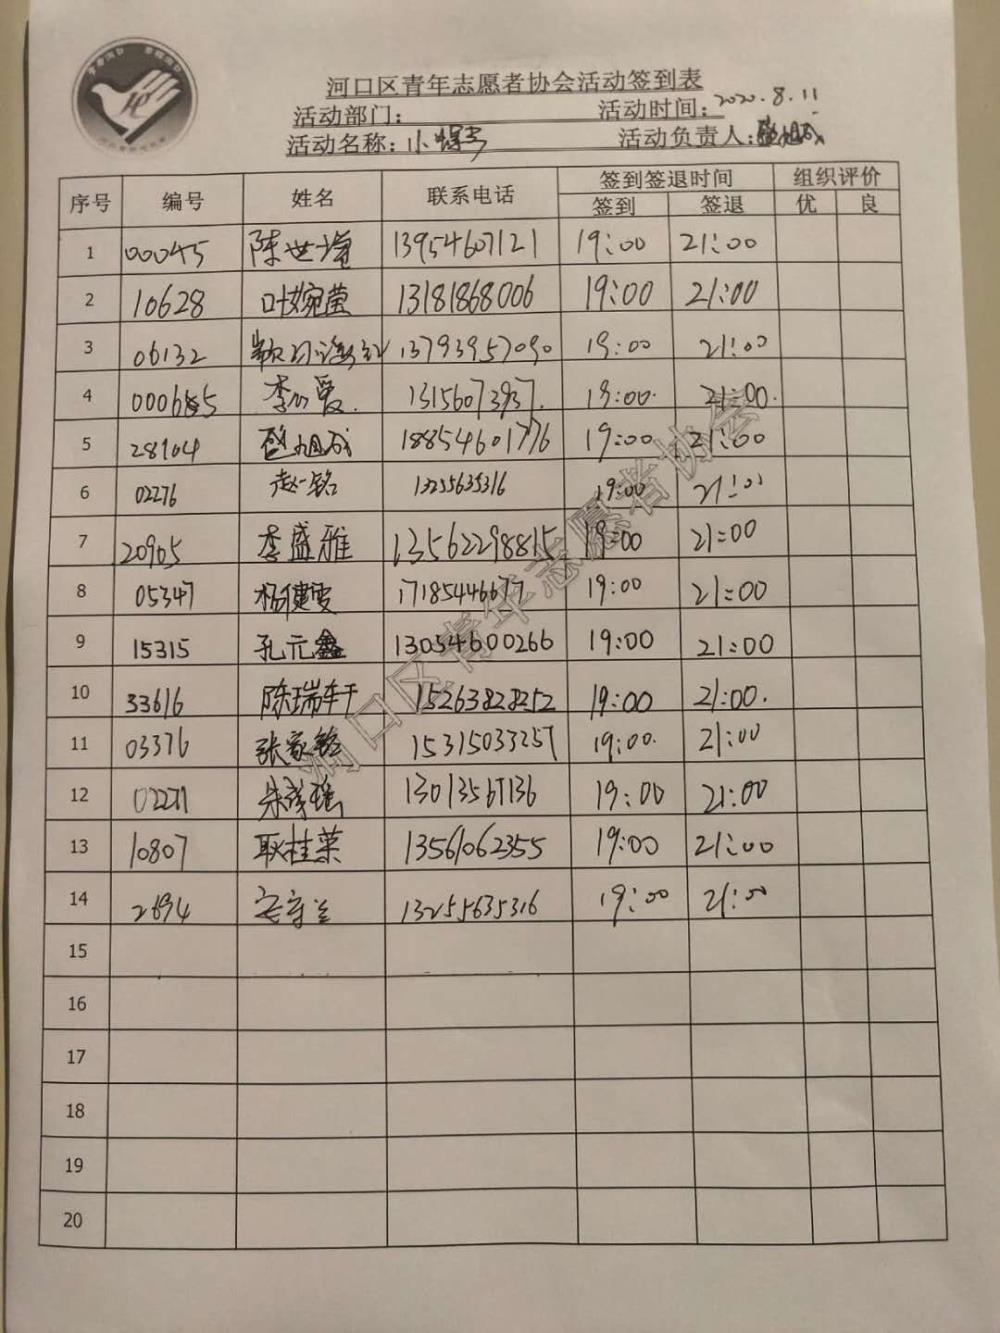 河口区青年志愿者协会活动签到表
活动部门: 活动时间: 2020.8.11
活动名称: 小 活动负责人:
序号 编号 姓名 联系电话 签到签退时间 组织评价
签到 签退 优 良
1 00045 陈世 13954607121 19:00 21:00
2 10628 叶婉莹 13181868006 19:00 21:00
3 06132 13793957090 19:00 21:00
4 李 爱 13156073937. 19:00. 21:00.
5 28904 18854601776 19:00 21:00
6 02276 赵一铭 13255635316 19:00 21:00
7 20905 李盛雅 13562298815 19:00 21:00
8 05347 杨健雯 17185446677 19:00 21:00
9 15315 孔元鑫 13054600266 19:00 21:00
10 33616 陈瑞轩 15263828252 19:00 21:00.
11 03376 张家铭 15315033257 19:00. 21:00
12 02271 朱彦瑶 13013567136 19:00 21:00
13 10807 耿桂荣 13561062355 19:00 21:00
14 2694 安守兰 13255635316 19:00 21:00
15
16
17
18
19
20
河口区青年志愿者协会